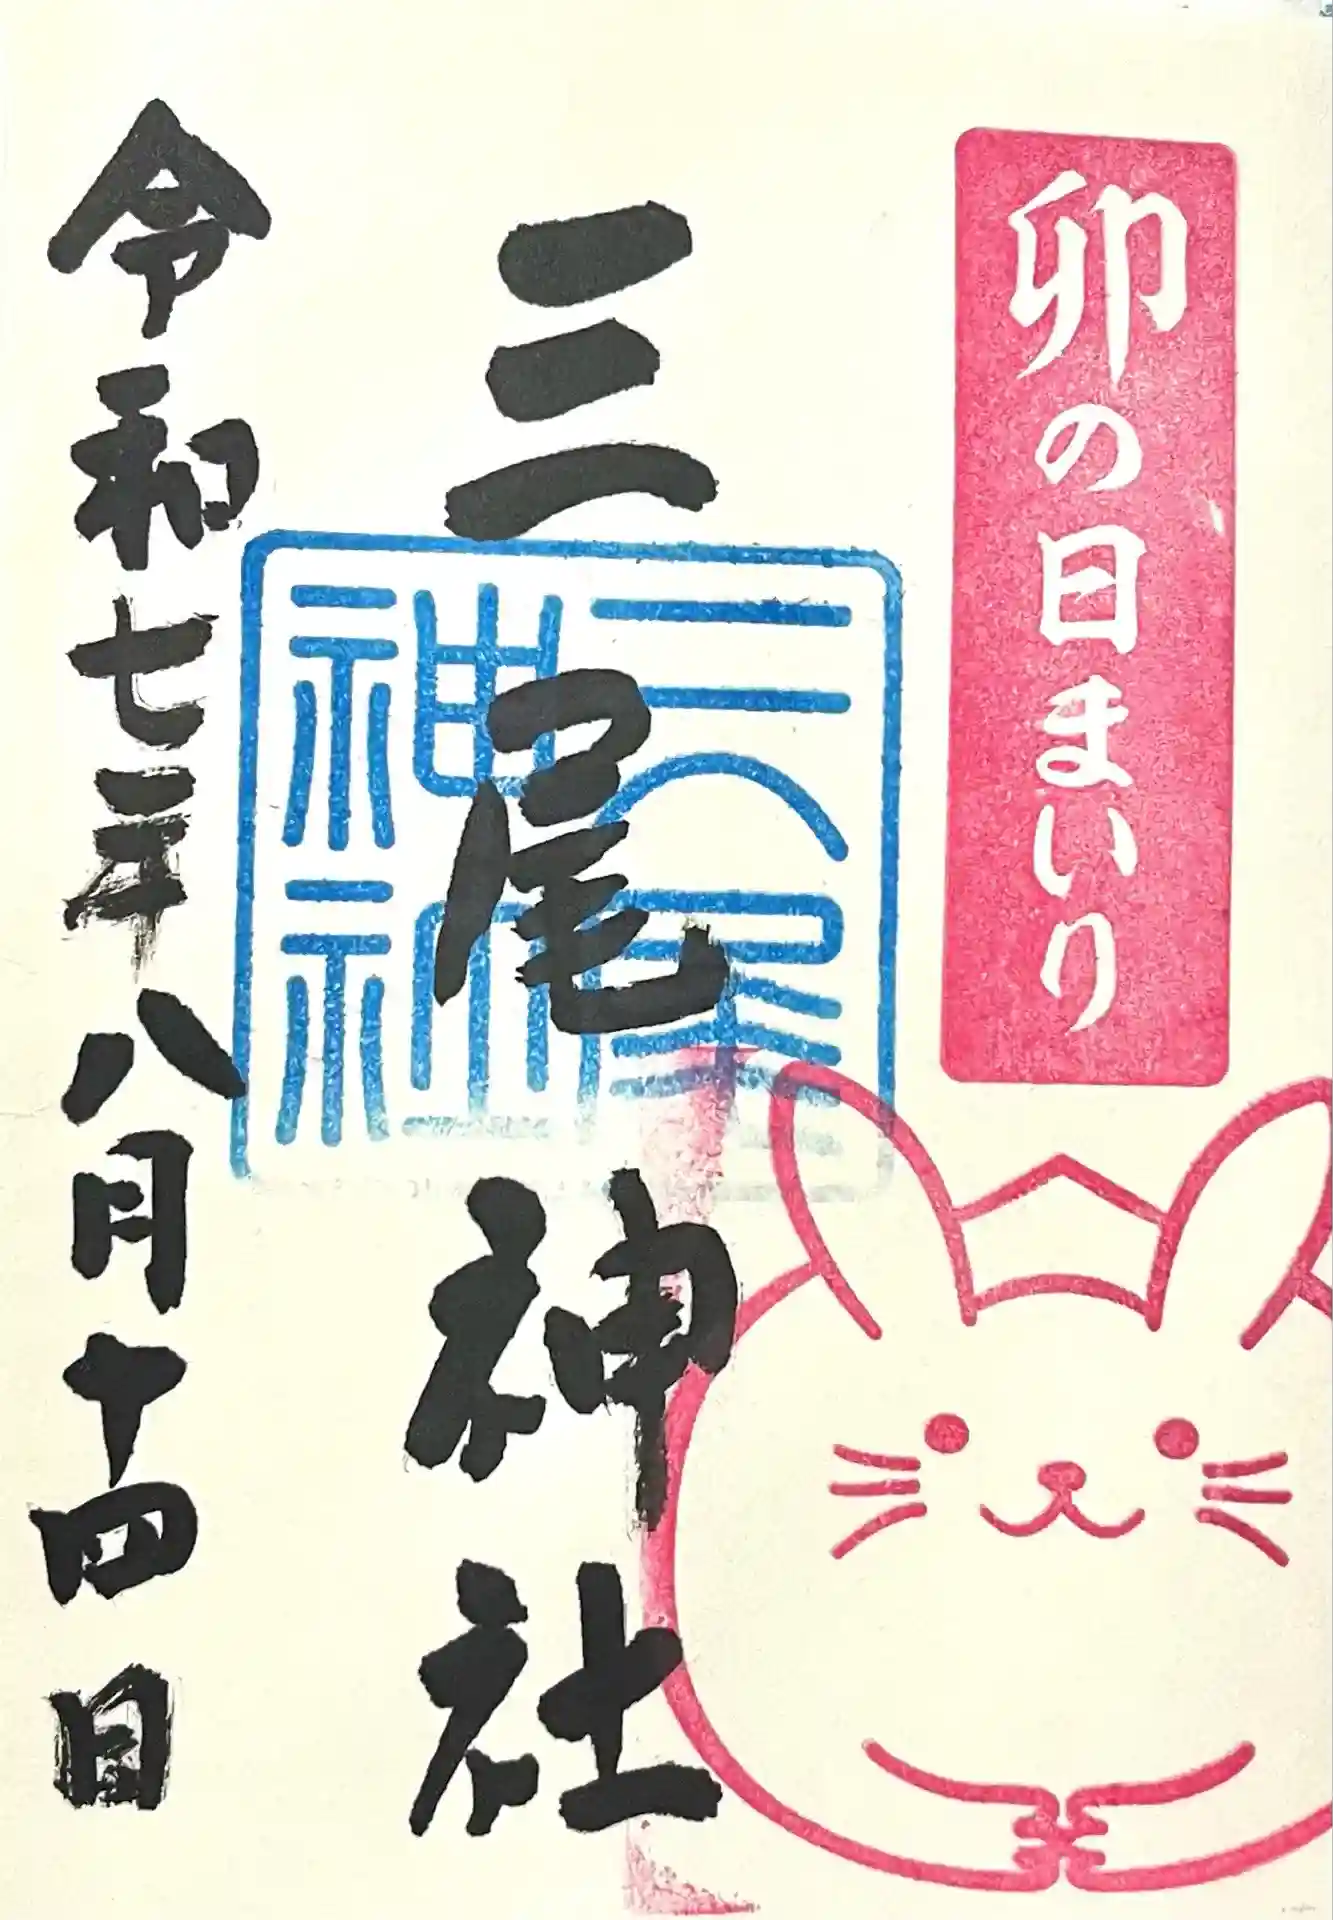 卯の日まいり
三尾神社
三尾神社
令和七年八月十四日